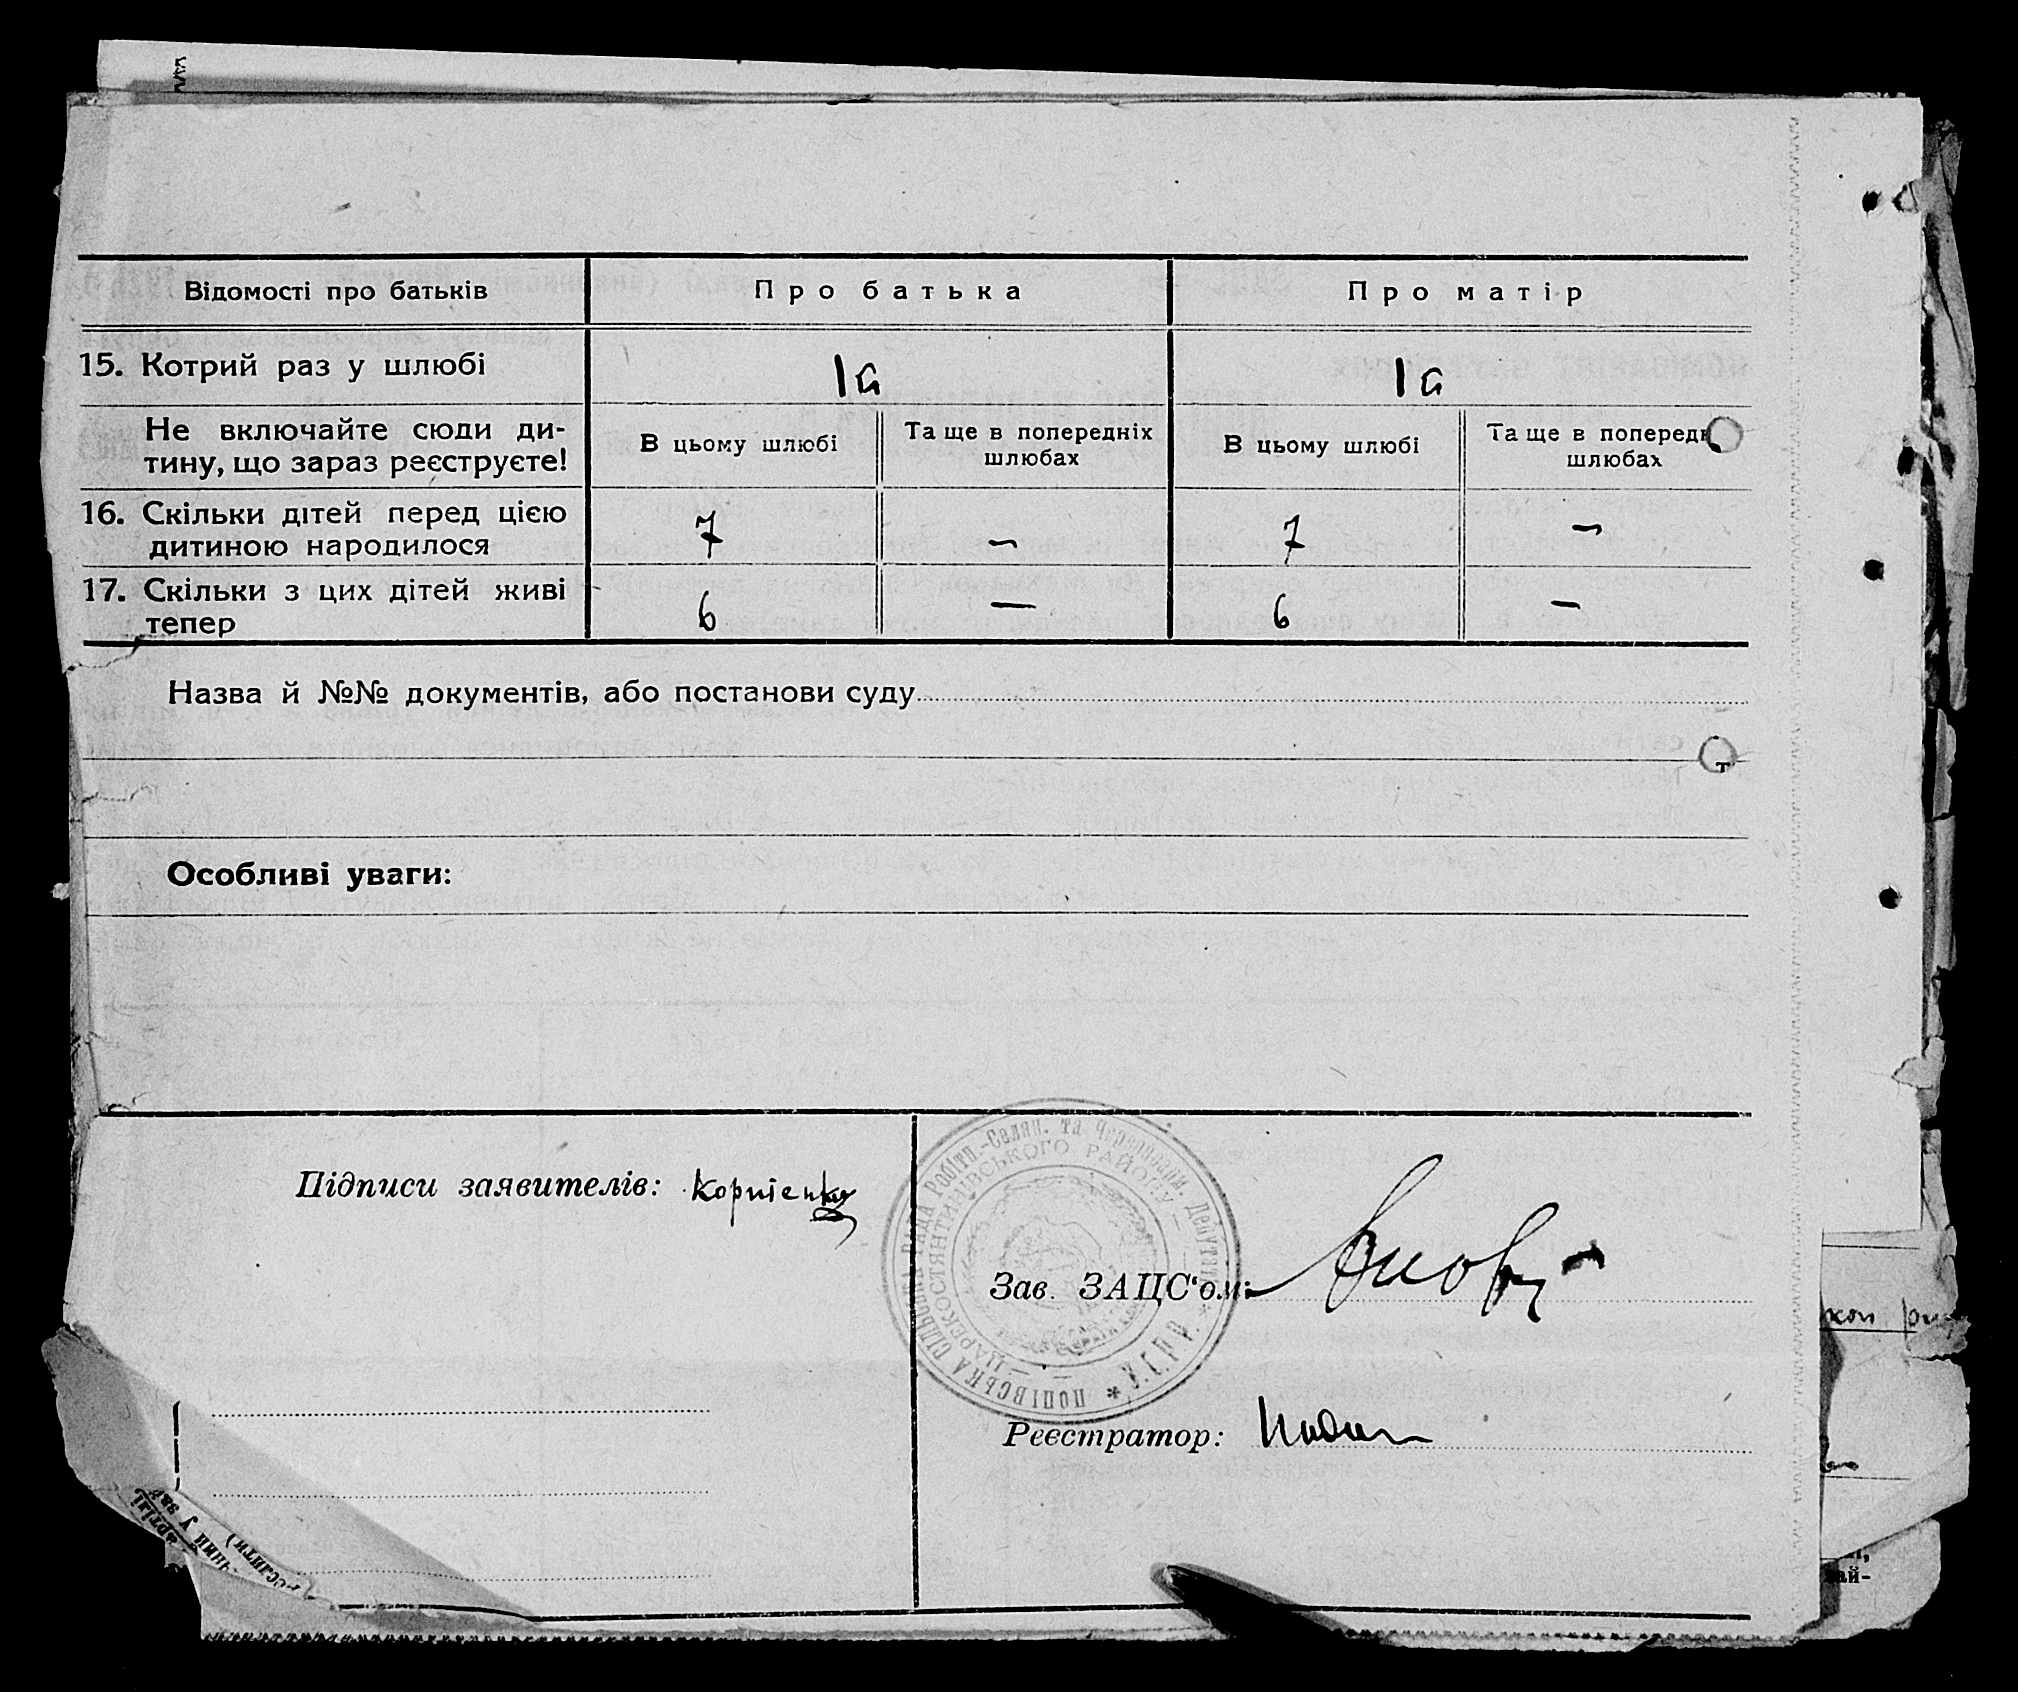 Відомості про батьків Про батька Про матір
15. Котрий раз у шлюбі Iй Iй
Не включайте сюди ди-
тину, що зараз реєструєте!
В цьому шлюбі
Та ще в попередніх
шлюбах
В цьому шлюбі
Та ще в попередн
шлюбах
16. Скільки дітей перед цією
дитиною народилося
7 – 7 –
17. Скільки з цих дітей живі
тепер
6 — 6 –
Назва й №№ документів, або постанови суду
Особливі уваги:
Підписи заявителів: Корнієнко
ПОПІВСЬКА СІЛЬСЬКА РАДА Робітн.-Селян. та Червоноарм. Депутатів * У.С.Р.Р. *
ЦАРЕКОСТЯНТИНІВСЬКОГО РАЙОНУ
Зав. ЗАЦС'ом:
Реєстратор: